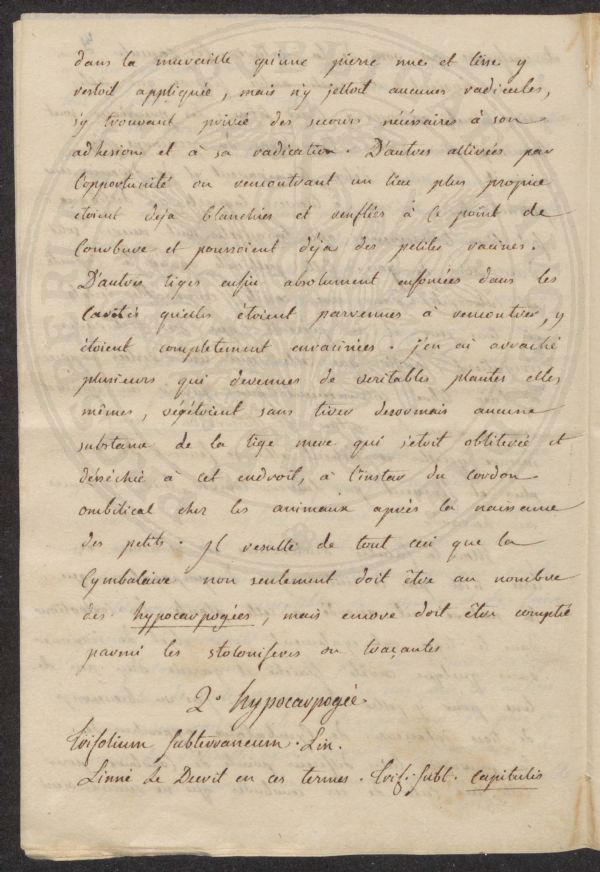 dans la muraille qu'une pierre nue et lisse y
restoit appliquée, mais n'y jettoit aucunes radicules,
s'y trouvant privée des secours nécéssaires à son
adhesion et à sa radication. D'autres attirées par
l'opportunité ou rencontrant un lieu plus propice
étoient deja blanchies et renflées à ce point de
courbure et poussoient déja des petites racines.
D'autres tiges enfin absolument enfoncées dans les
cavités qu'elles étoient parvenues à rencontrer, y
étoient completement enracinées. j'en ai arraché
plusieurs qui devenues de veritables plantes elles
mêmes, végétoient sans tirer desormais aucune
substance de la tige mere qui s'etoit oblitereé et
déséchée à cet endroit, à l'instar du cordon
ombilical chez les animaux après la naissance
des petits. Il resulte de tout ceci que la
Cymbalaire non seulement doit être au nombre
des hypocarpogées, mais encore doit être comptée
parmi les stoloniferes ou traçantes
2.° hypocarpogée.
trifolium subterraneum. Lin.
Linné le Decrit en ces termes. trif. subt. capitulis